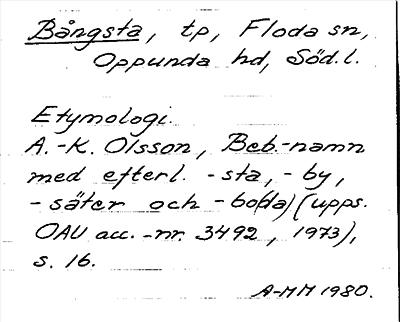 Bångsta, tp, Floda sn,
Oppunda hd, Söd.l.
Etymologi.
A.-K. Olsson, Beb.-namn
med efterl. -sta, -by,
-säter och -bo(da) (upps.
OAU acc.-nr. 3492, 1973),
s. 16.
A-MM 1980.